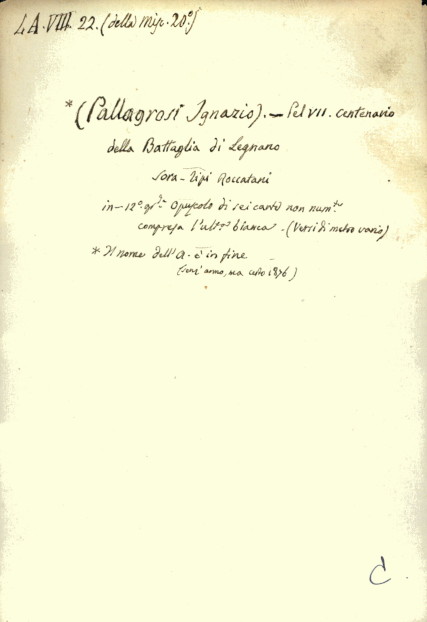 LA.VIII. 22. (della Misc. 20ª)
*(Pallagrosi Ignazio). — Pel VII. centenario
della Battaglia di Legnano
Sora - Tipi Roccatani
in-12º. gr. Opuscolo di sei carte non num.te
compresa l'ult.ª bianca. (Versi di metro vario)
* Il nome dell'A. è in fine
(senz'anno, ma certo 1876)
C